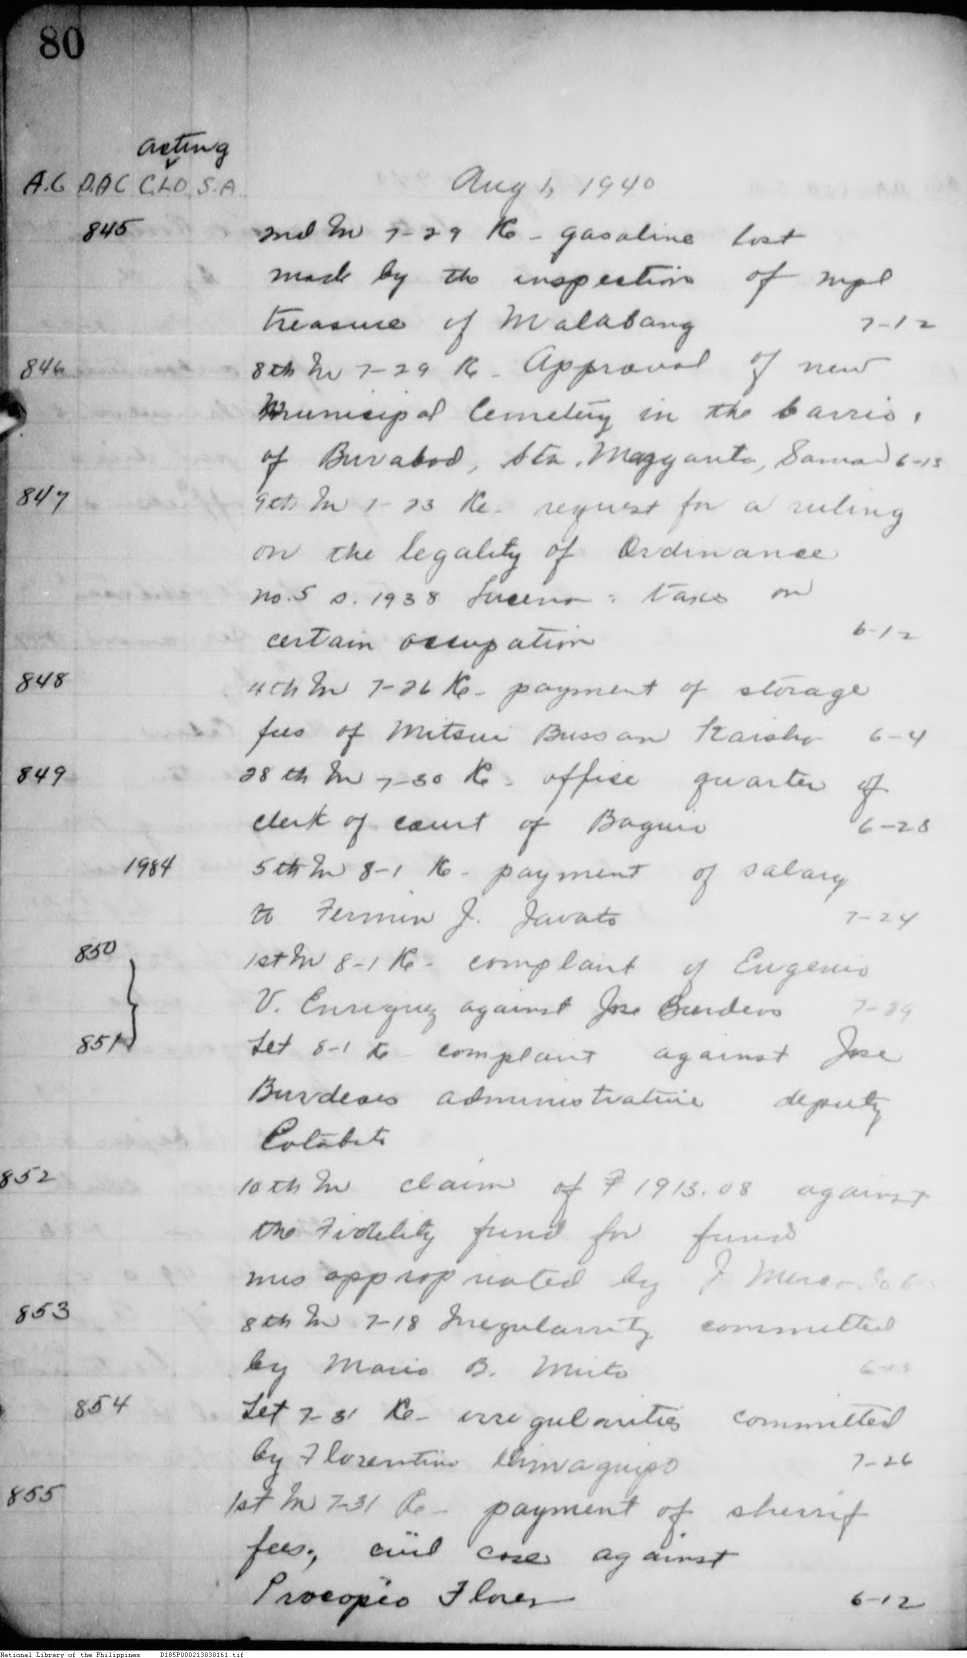 80
acting
A.C D.A.C C.L.O S.A.
Aug 1, 1940
845 2nd In 7-29 Re - gasoline lost
made by the inspection of mpl
treasure of Malabang 7-12
846 8th In 7-29 Re - Approval of new
Municipal Cemetery in the barrio
of Burabod, Sta. Margarita, Samar 6-13
847 9th In 7-23 Re - request for a ruling
on the legality of Ordinance
no. 5 s. 1938 Lucena : taxes on
certain occupation 6-12
848 4th In 7-26 Re - payment of storage
fees of Mitsui Bussan Kaisha 6-4
849 28th In 7-30 Re - office quarter of
clerk of court of Baguio 6-28
1984 5th In 8-1 Re - payment of salary
to Fermin J. Javato 7-24
850 1st In 8-1 Re - complaint of Eugenio
V. Enriquez against Jose Burdeos 7-29
851 Let 8-1 Re complaint against Jose
Burdeos administrative deputy
Cotabato
852 10th In claim of ₱ 1913.08 against
the Fidelity fund for funds
misappropriated by J.
853 8th In 7-18 Irregularity committed
by Mario B.
854 Let 7-31 Re - irregularities committed
by Florentino 7-26
855 1st In 7-31 Re - payment of sherrif
fees, civil case against
Procopio Flores 6-12
National Library of the Philippines D185P000213838161.tif